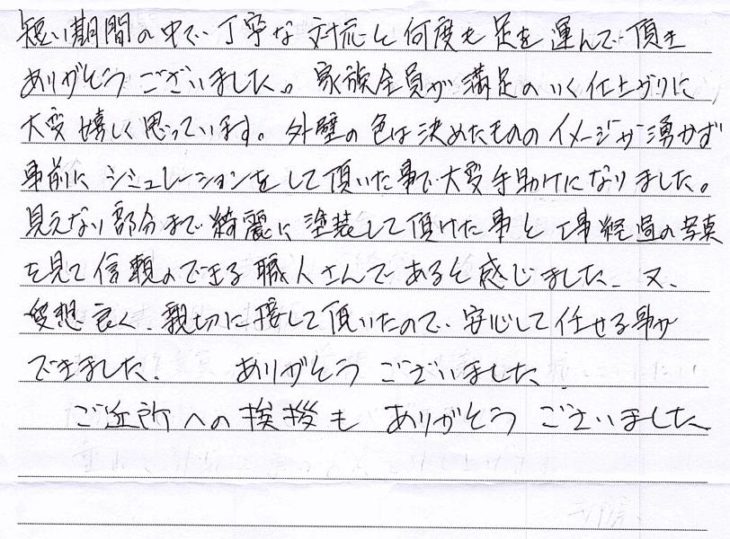 短い期間の中で、丁寧な対応と何度も足を運んで頂き
ありがとうございました。家族全員が満足のいく仕上がりに
大変嬉しく思っています。外壁の色は決めたもののイメージが湧かず
事前にシミュレーションをして頂いた事で大変手助けになりました。
見えない部分まで綺麗に塗装して頂けた事と工事経過の写真
を見て信頼のできる職人さんであると感じました。又、
愛想良く、親切に接して頂いたので、安心して任せる事が
できました。 ありがとうございました
ご近所への挨拶も ありがとうございました